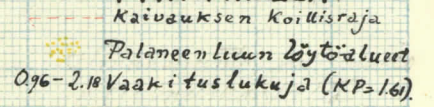 Kaivauksen Koillisraja
Palaneen luun löytöalueet
0.96-2.18 Vaakituslukuja (KP=1.61).